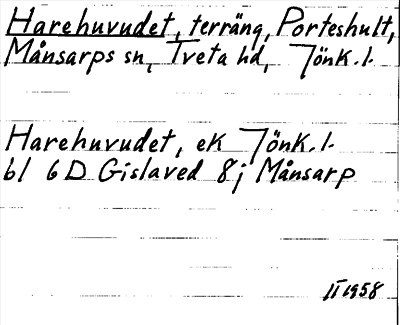 Harehuvudet, terräng, Porteshult,
Månsarps sn, Tveta hd, Jönk. l.
Harehuvudet, ek Jönk. l.
bl 6 D Gislaved 8j Månsarp
II 1958